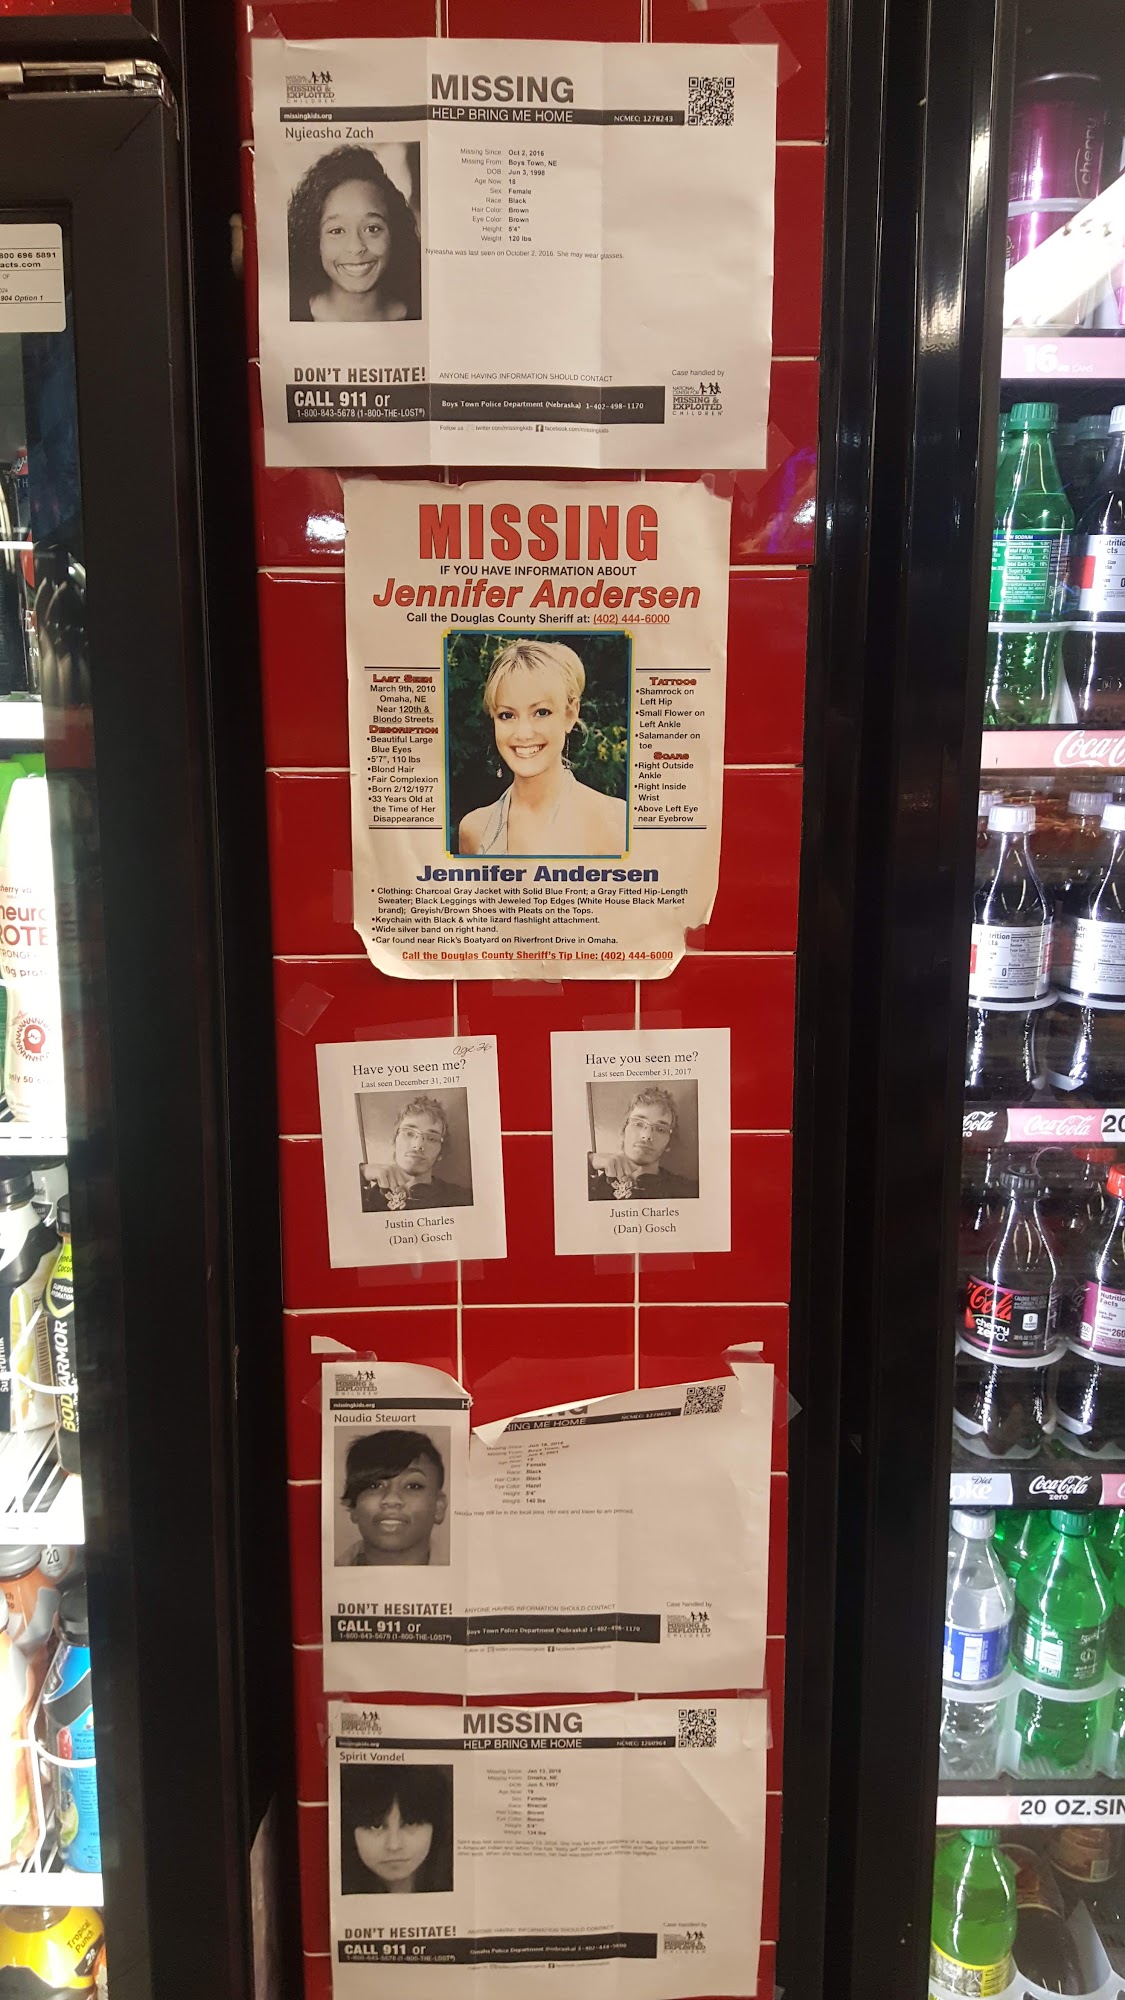 NATIONAL CENTER FOR
MISSING &
EXPLOITED
CHILDREN
MISSING
missingkids.org
HELP BRING ME HOME
NCMEC: 1278243
Nyieasha Zach
Missing Since: Oct 2, 2016
Missing From: Boys Town, NE
DOB: Jun 3, 1998
Age Now: 18
Sex: Female
Race: Black
Hair Color: Brown
Eye Color: Brown
Height: 5'4"
Weight: 120 lbs
Nyieasha was last seen on October 2, 2016. She may wear glasses.
DON'T HESITATE!
ANYONE HAVING INFORMATION SHOULD CONTACT
Case handled by
CALL 911 or
1-800-843-5678 (1-800-THE-LOST®)
Boys Town Police Department (Nebraska) 1-402-498-1170
NATIONAL CENTER FOR
MISSING &
EXPLOITED
CHILDREN
Follow us twitter.com/missingkids facebook.com/missingkids
MISSING
IF YOU HAVE INFORMATION ABOUT
Jennifer Andersen
Call the Douglas County Sheriff at: (402) 444-6000
LAST SEEN
March 9th, 2010
Omaha, NE
Near 120th &
Blondo Streets
DESCRIPTION
•Beautiful Large
Blue Eyes
•5'7", 110 lbs
•Blond Hair
•Fair Complexion
•Born 2/12/1977
•33 Years Old at
the Time of Her
Disappearance
TATTOOS
•Shamrock on
Left Hip
•Small Flower on
Left Ankle
•Salamander on
toe
SCARS
•Right Outside
Ankle
•Right Inside
Wrist
•Above Left Eye
near Eyebrow
Jennifer Andersen
• Clothing: Charcoal Gray Jacket with Solid Blue Front; a Gray Fitted Hip-Length
Sweater; Black Leggings with Jeweled Top Edges (White House Black Market
brand); Greyish/Brown Shoes with Pleats on the Tops.
•Keychain with Black & white lizard flashlight attachment.
•Wide silver band on right hand.
•Car found near Rick's Boatyard on Riverfront Drive in Omaha.
Call the Douglas County Sheriff's Tip Line: (402) 444-6000
age 26
Have you seen me?
Last seen December 31, 2017
Justin Charles
(Dan) Gosch
Have you seen me?
Last seen December 31, 2017
Justin Charles
(Dan) Gosch
MISSING &
EXPLOITED
CHILDREN
missingkids.org
H
RING ME HOME
Naudia Stewart
Sex: Female
Race: Black
Hair Color: Black
Eye Color: Hazel
Height: 5'4"
Weight: 140 lbs
DON'T HESITATE!
ANYONE HAVING INFORMATION SHOULD CONTACT
Case handled by
CALL 911 or
1-800-843-5678 (1-800-THE-LOST®)
Boys Town Police Department (Nebraska) 1-402-498-1170
MISSING &
EXPLOITED
CHILDREN
MISSING
missingkids.org
HELP BRING ME HOME
NCMEC: 1260964
Spirit Vandel
DON'T HESITATE!
ANYONE HAVING INFORMATION SHOULD CONTACT
Case handled by
CALL 911 or
1-800-843-5678 (1-800-THE-LOST®)
Omaha Police Department (Nebraska)
MISSING &
EXPLOITED
CHILDREN
800 696 5891
acts.com
904 Option 1
cherry
16 OZ. CANS
Coca-C
Coca-Cola
20
Cherry
zero
Diet
oke
Coca-Cola
zero
20 OZ. SIN
BODYARMOR
Tropical
Punch
20